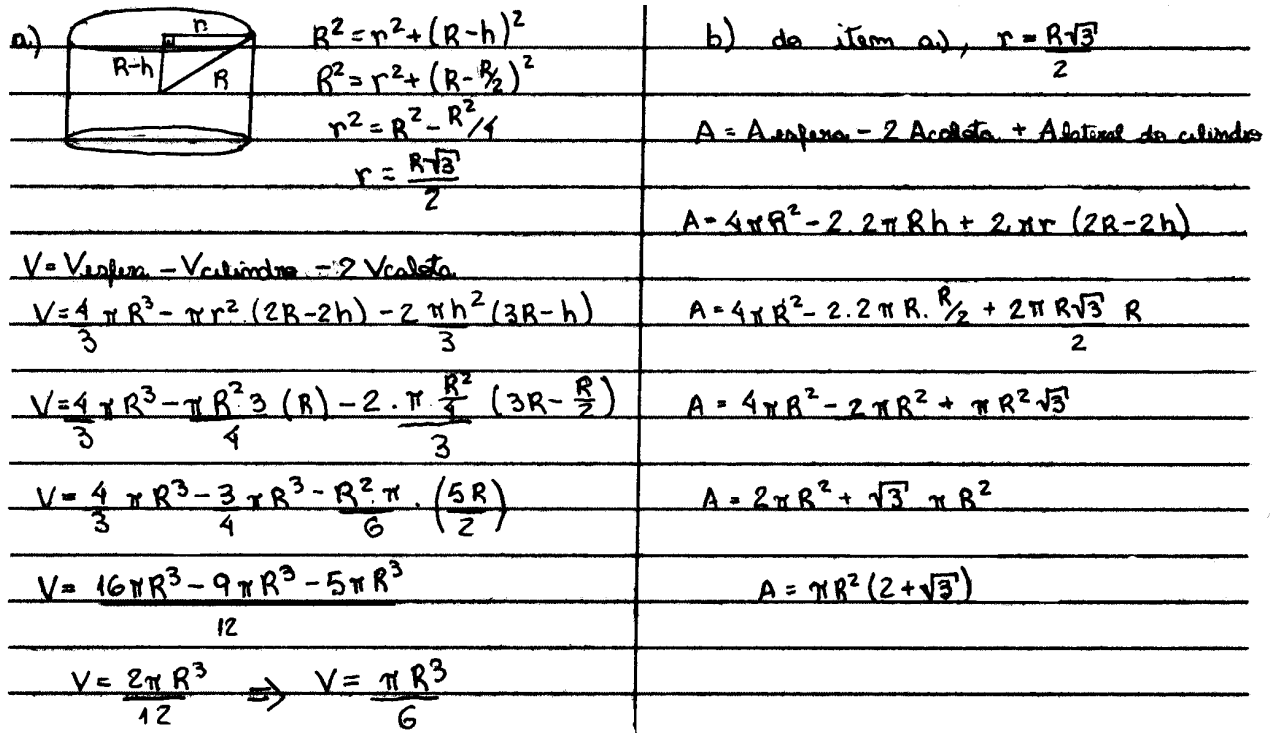 a)
r
R-h
R
R² = r² + (R-h)²
R² = r² + (R-R/2)²
r² = R² - R²/4
r = R√3/2
V = Vesfera - Vcilindro - 2 Vcalota
V = 4/3 πR³ - πr². (2R-2h) - 2 πh²/3 (3R-h)
V = 4/3 πR³ - πR²3/4 (R) - 2 . π R²/4/3 (3R - R/2)
V = 4/3 πR³ - 3/4 πR³ - R².π/6 . (5R/2)
V = 16πR³ - 9πR³ - 5πR³/12
V = 2πR³/12 ⇒ V = πR³/6
b) do item a), r = R√3/2
A = A esfera - 2 Acalota + A lateral do cilindro
A = 4πR² - 2.2πRh + 2πr (2R-2h)
A = 4πR² - 2.2πR.R/2 + 2πR√3/2 R
A = 4πR² - 2πR² + πR²√3
A = 2πR² + √3 πR²
A = πR²(2+√3)